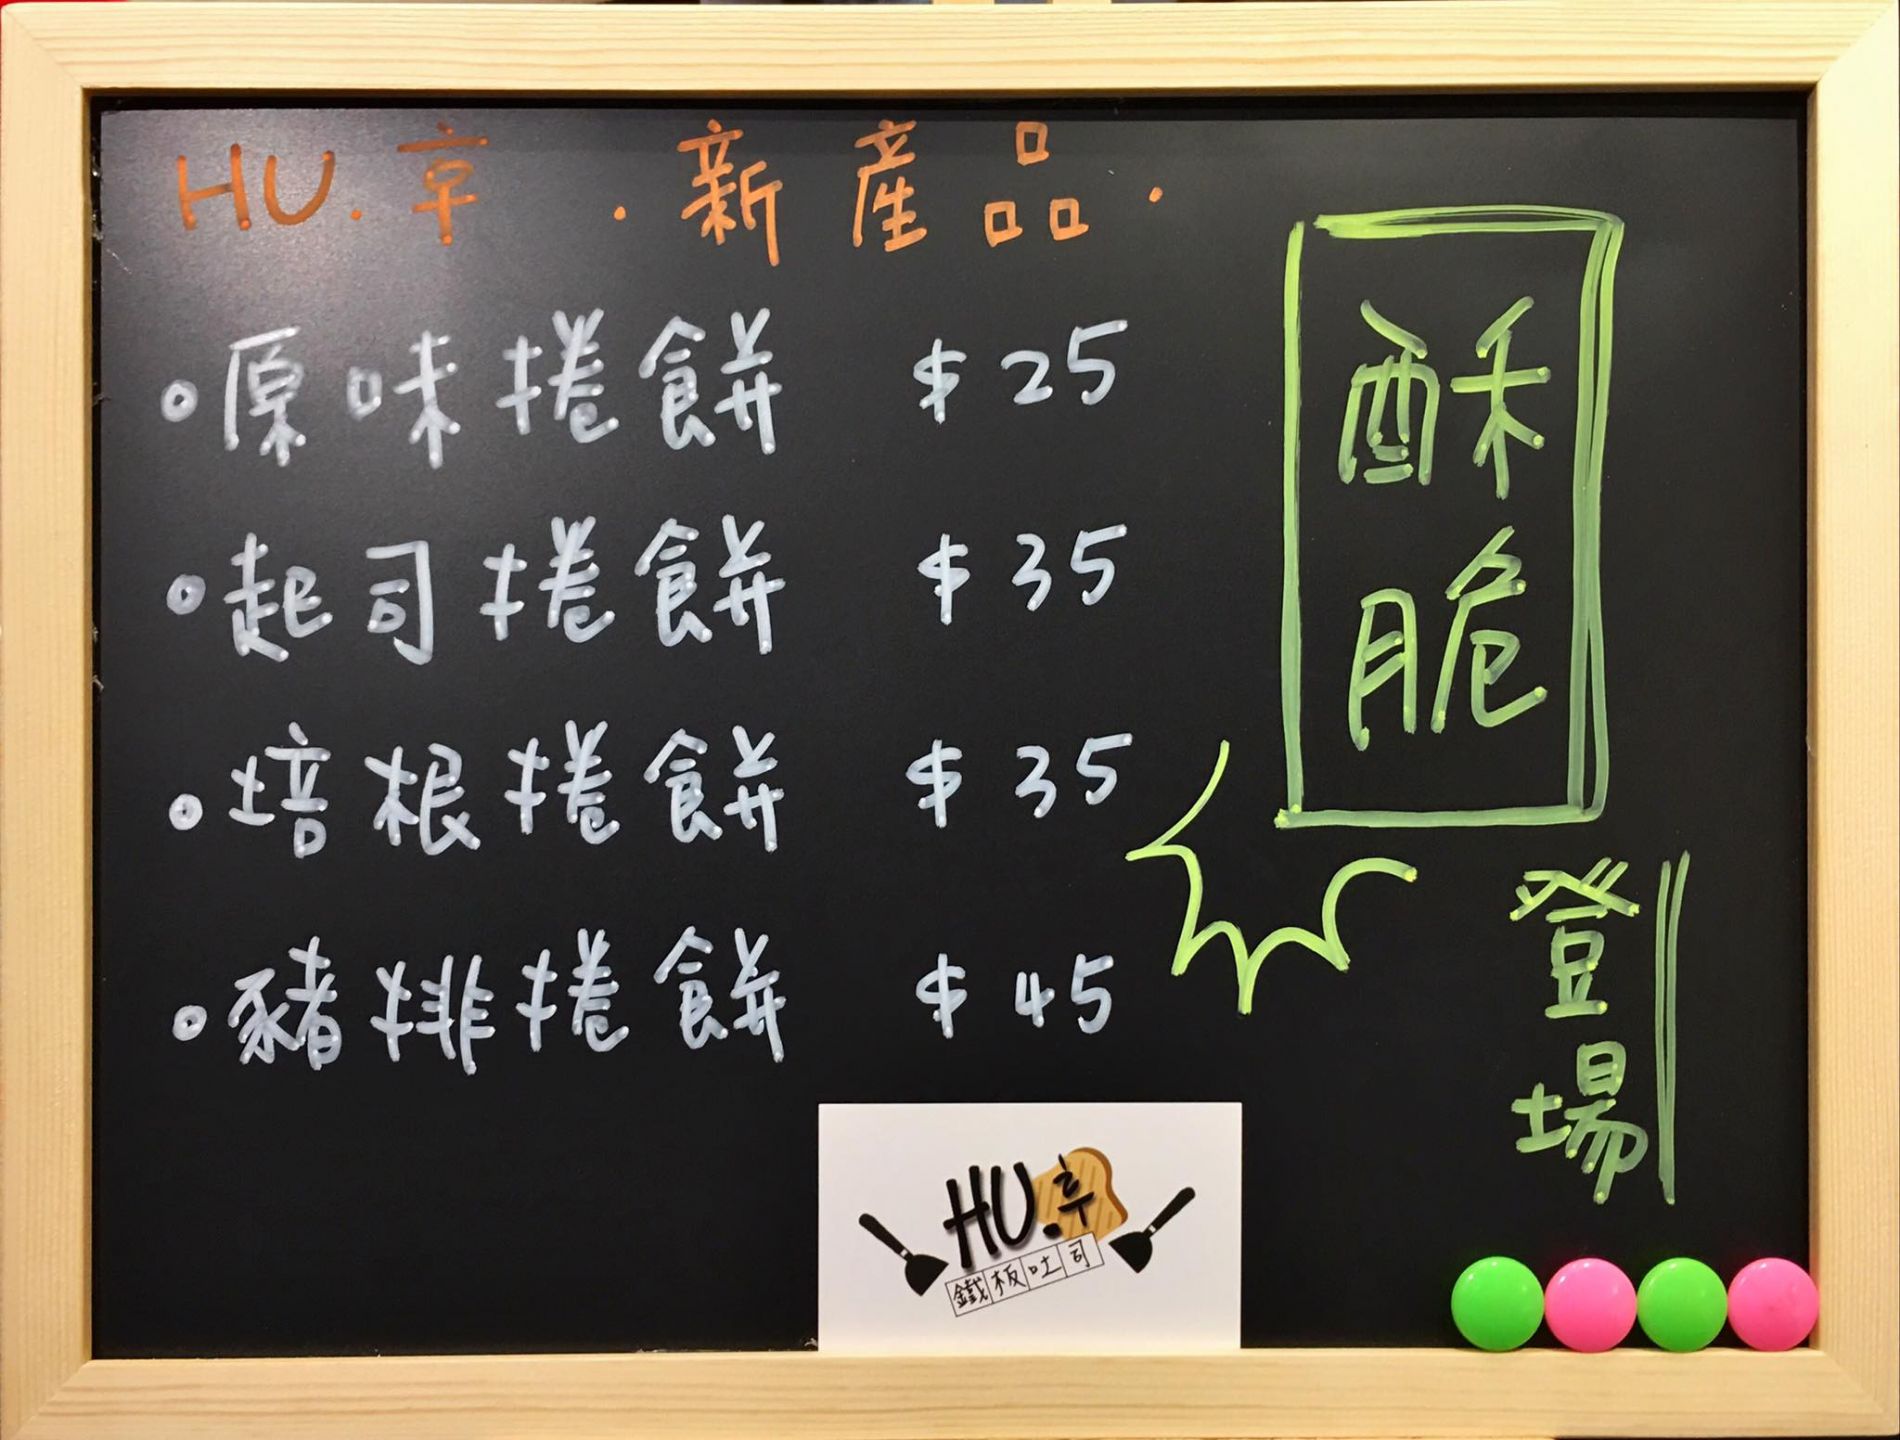 HU.享 ·新產品·
原味捲餅 $25
起司捲餅 $35
培根捲餅 $35
豬排捲餅 $45
酥脆
登場
HU.享
鐵板吐司